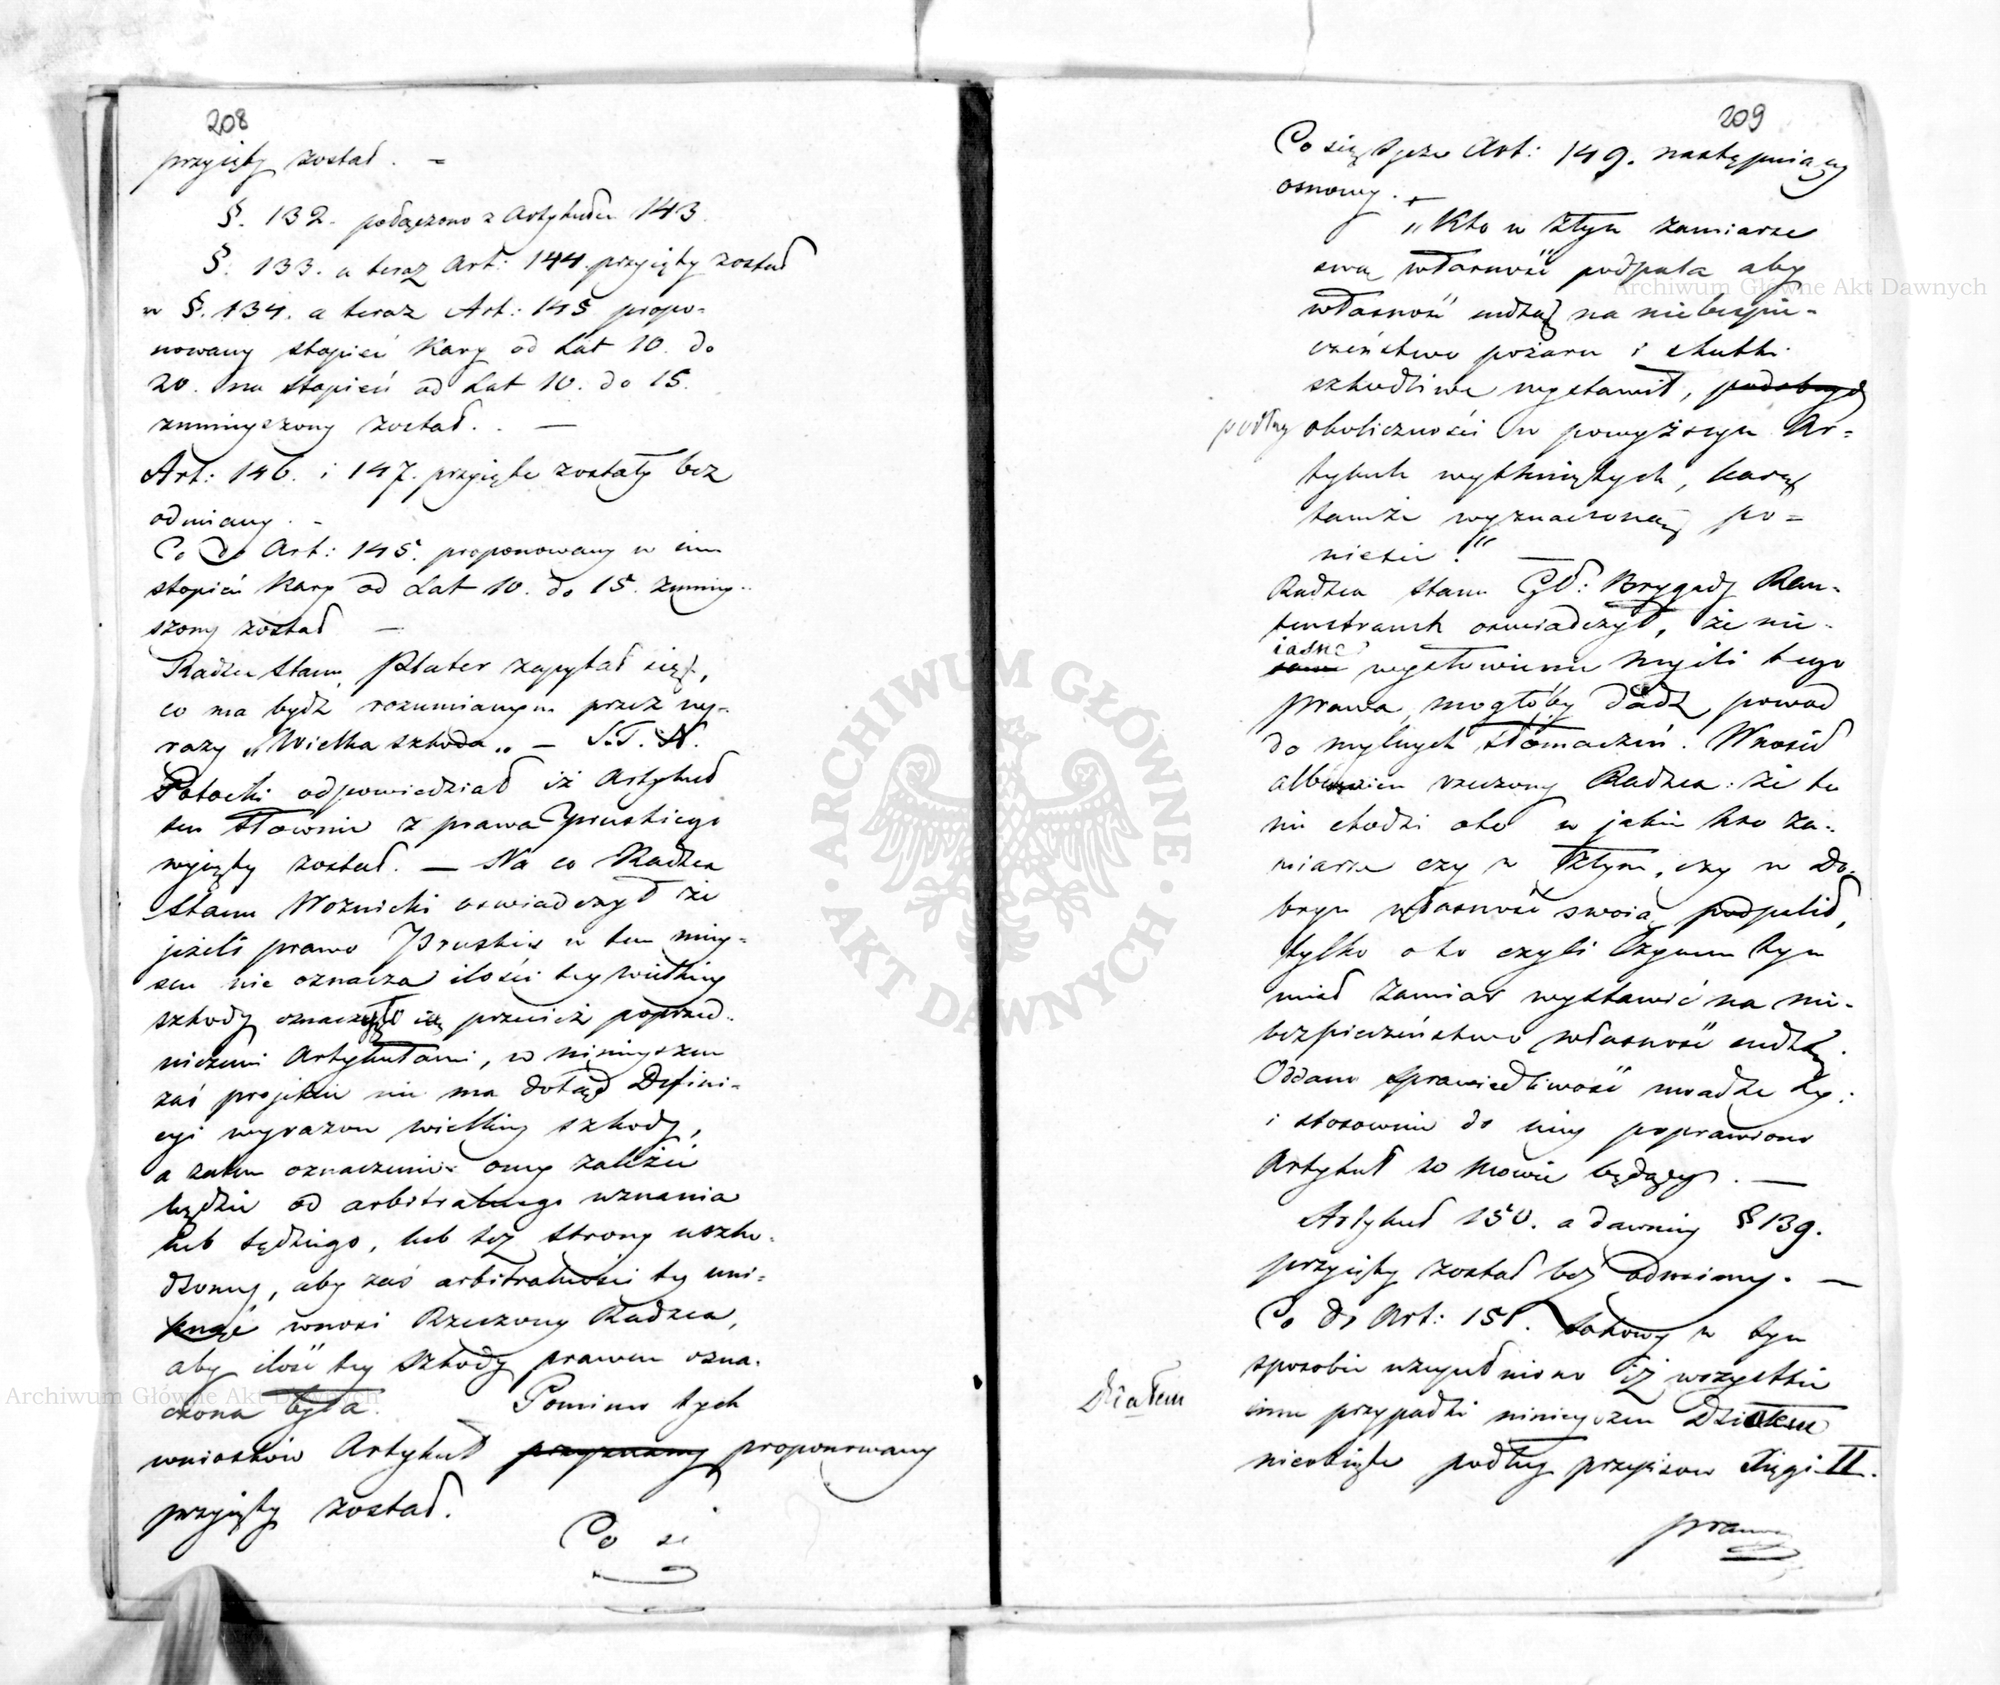 208
przyięty został. =
§. 132. połączono z Artykułem 143.
§. 133. a teraz Art: 144. przyięty został
w §. 134. a teraz Art: 145 propo-
nowany stopień Kary od Lat 10. do
20. na stopień od Lat 10. do 15.
zmnieyszony został. . —
Art: 146. i 147. przyięte zostały bez
odmiany. -
Co do Art: 145. proponowany w nim
stopień Kary od Lat 10. do 15. zmniey-
szony został —
Radzca Stanu Plater zapytał się,
co ma bydź rozumianym przez wy-
razy „Wielka szkoda„ — J. T. N.
Potocki odpowiedział iż Artykuł
ten słownie z prawa Pruskiego
wyięty został. — Na co Radzca
Stanu Woznicki oswiadczył że
jeżeli prawo Pruskie w tem miey-
scu nie oznacza ilości tey wielkiey
szkody przecież poprzed-
niczemi Artykułami, w ninieyszem
zaś projekcie nie ma dotąd Defini-
cyi wyrazow wielkiey szkody,
a zatem oznaczenie oney zależeć
będzie od arbitralnego uznania
lub sędziego, lub też strony uszko-
dzoney, aby zaś arbitralności tey uni-
knąć wnosi Rzeczony Radzca,
aby ilość tey szkody prawem ozna-
czona była. Pomimo tych
wniosków Artykuł przyznany proponowany
przyięty został.
Co si
209
Co się tycze Art: 149. następuiącey
osnowy. —
„Kto w złym zamiarze
swą własność podpala aby
własność cudzą na niebespie-
czeństwo pożaru i skutki
szkodliwe wystawił, podobnych
podług okoliczności w powyższym Ar-
tykule wytkniętych, karę
tamże wyznaczoną po-
niesie.“ —
Radzca Stanu Gł: Brygady Rau-
tenstrauch oswiadczył, że nie-
iasne
wysłowienie myśli tego
prawa, mogłoby dadź powod
do mylnych tłómaczeń. Wnosił
albowiem rzeczony Radzca: że tu
nie chodzi oto w jakim kto za-
miarze czy w złym, czy w do-
brym własność swoią podpalił,
tylko oto czyli Czynem tym
miał zamiar wystawić na nie-
bezpieczeństwo własność cudzą.
Oddano sprawiedliwość uwadze tey:
i stosownie do niey poprawiono
Artykuł w mowie będący. —
Artykuł 150. a dawniey § 139.
przyięty został bez odmiany. —
Co do Art: 151. takowy w tym
sposobie uzupełniono iż wszystkie
Działem
inne przypadki ninieyszem Działem
nieobięte podług przepisow Xięgi II.
prawa